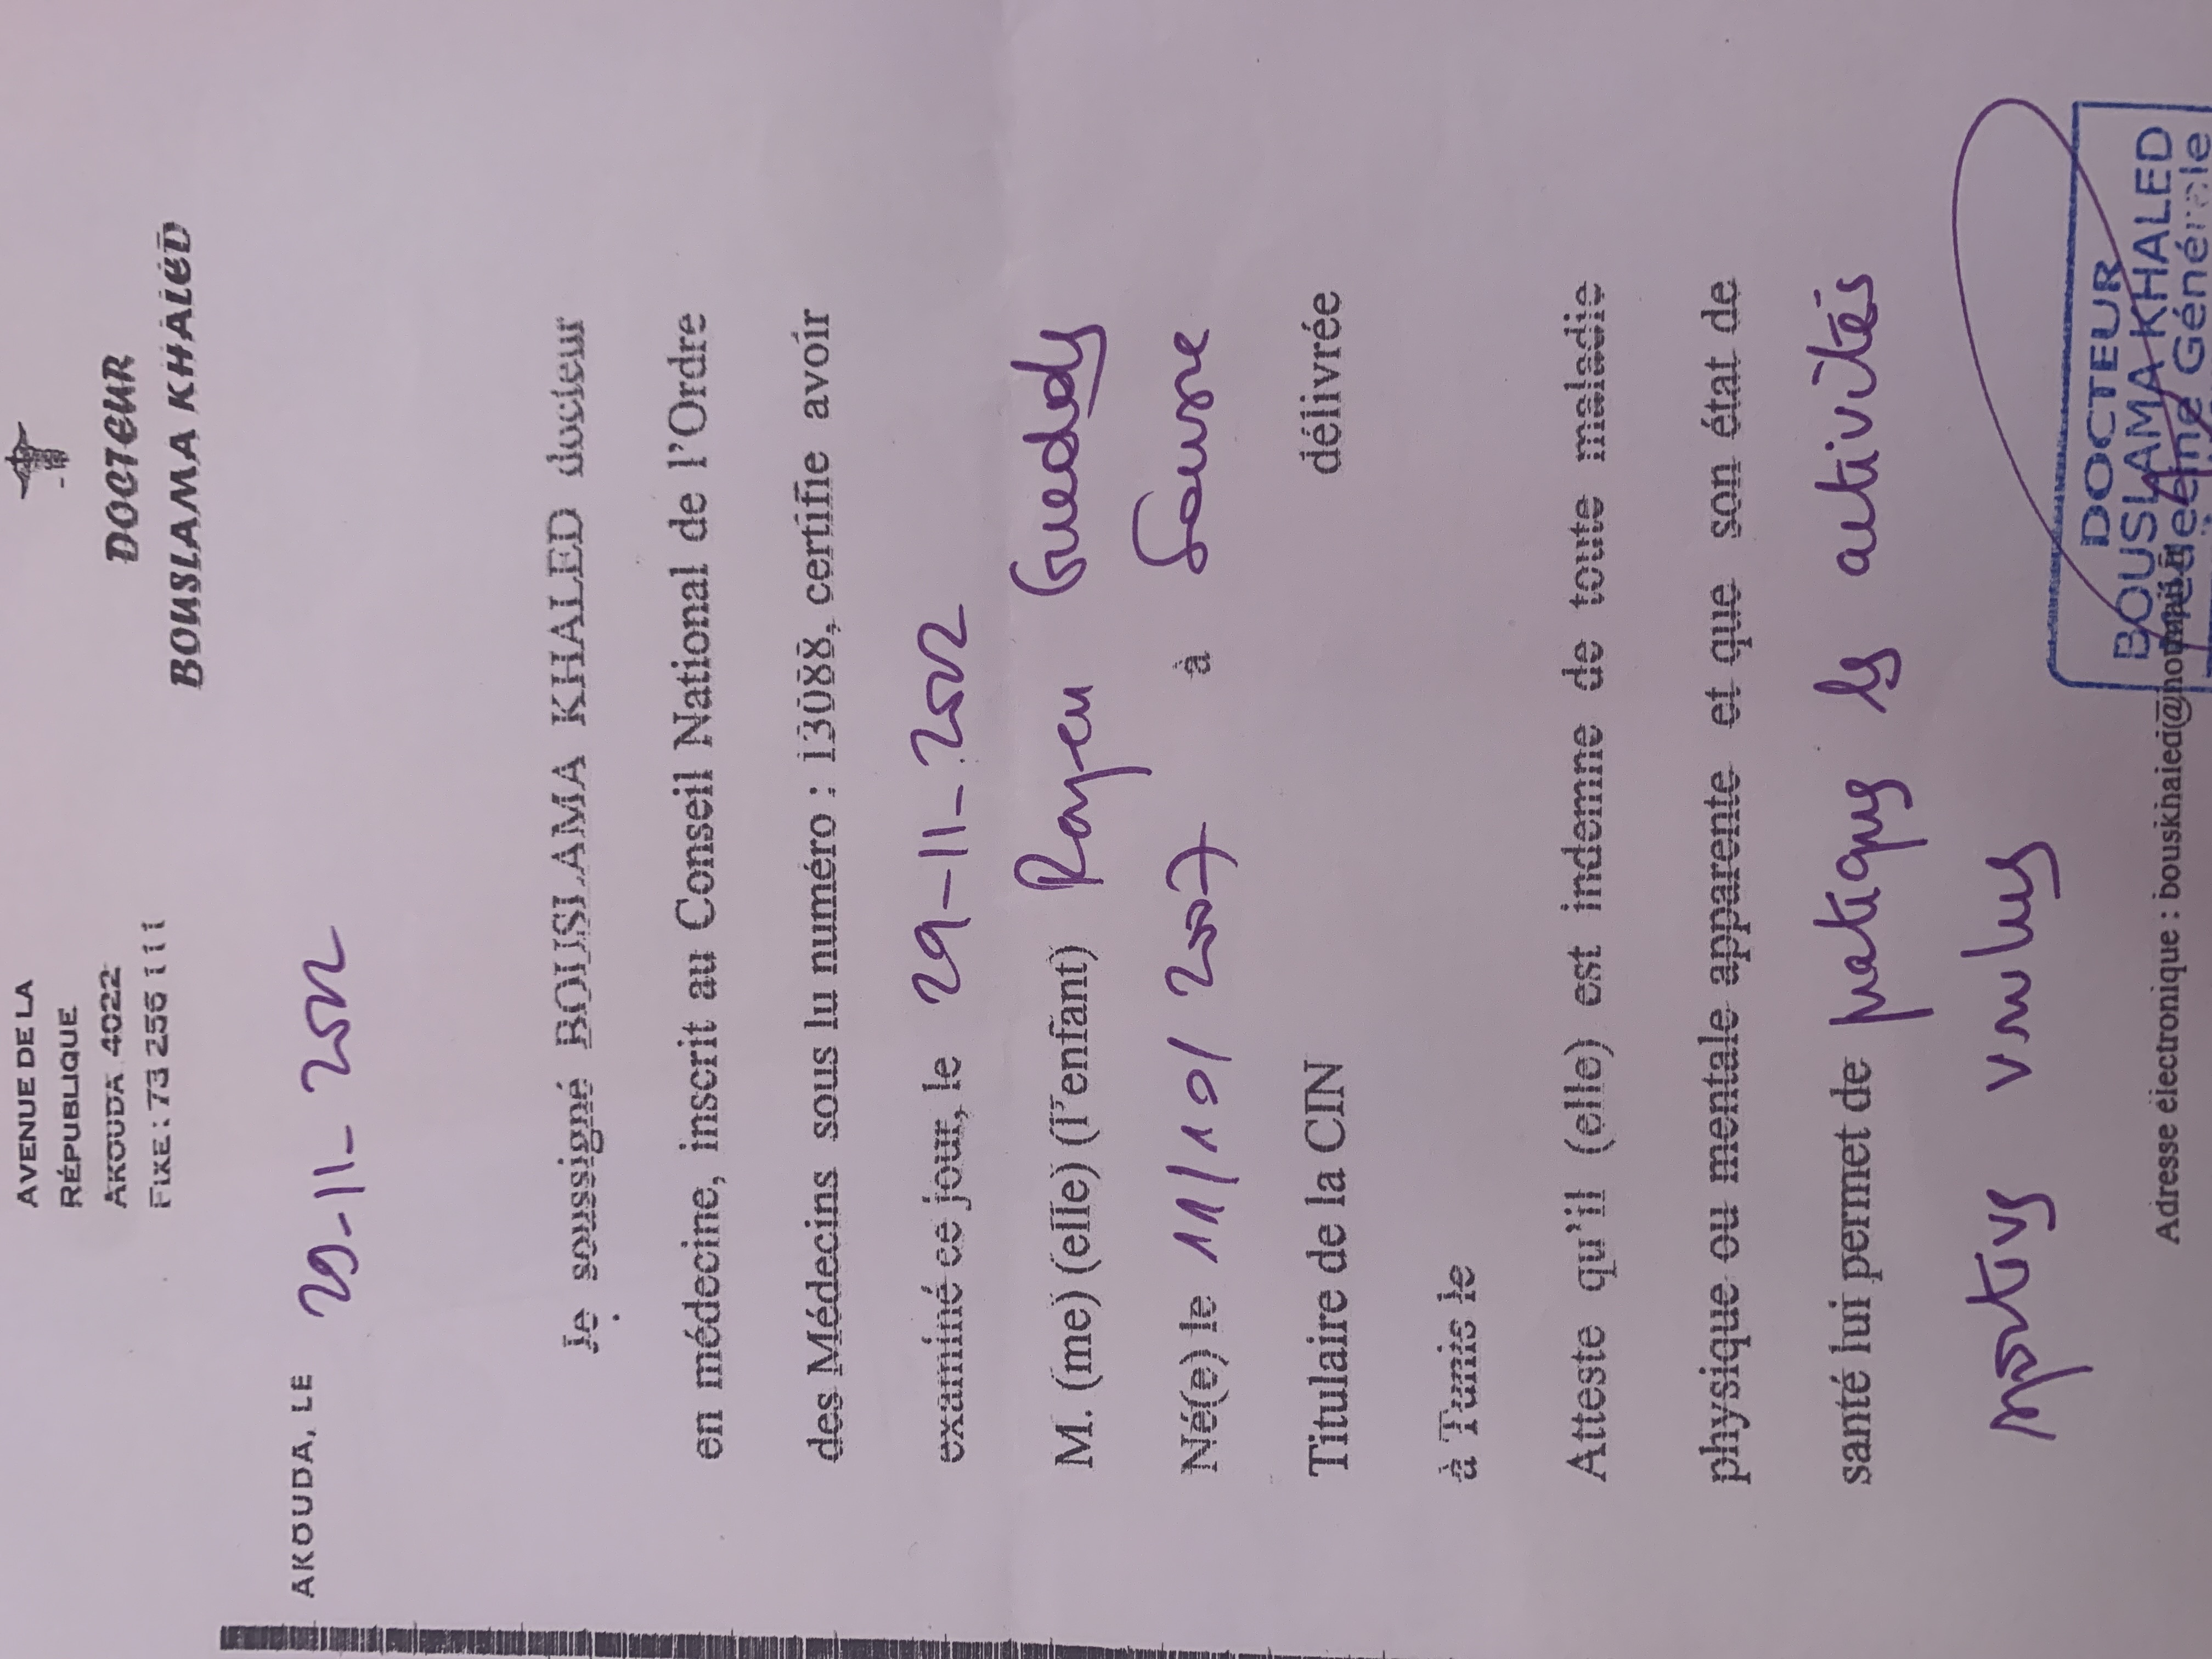 AVENUE DE LA
RÉPUBLIQUE
AKOUDA 4022
FIXE : 73 256 111
DOCTEUR
BOUSLAMA KHALED
AKOUDA, LE 29-11-2022
Je soussigné BOUSLAMA KHALED docteur
en médecine, inscrit au Conseil National de l'Ordre
des Médecins sous lu numéro : 13088, certifie avoir
examiné ce jour, le 29-11-2022
M. (me) (elle) (l'enfant) Rayen Gueddes
Né(e) le 11/10/2007 à Sousse
Titulaire de la CIN délivrée
à Tunis le
Atteste qu'il (elle) est indemne de toute maladie
physique ou mentale apparente et que son état de
santé lui permet de pratiquer les activités
sportives
DOCTEUR
BOUSLAMA KHALED
Médecine Générale
Adresse électronique : bouskhaled@hotmail.fr